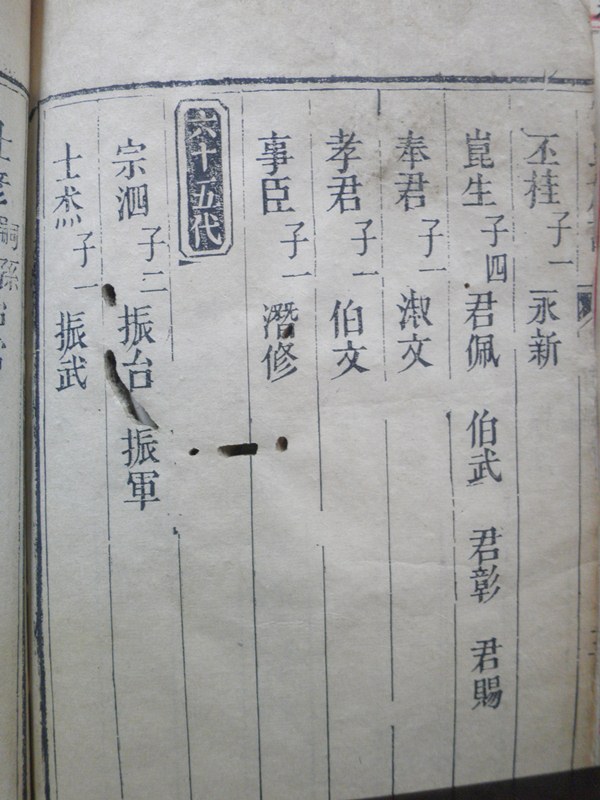 丕桂 子一 永新
崑生 子四 君佩 伯武 君彰 君賜
奉君 子一 淑文
孝君 子一 伯文
事臣 子一 潛修
六十五代
宗泗 子二 振台 振軍
士焘 子一 振武